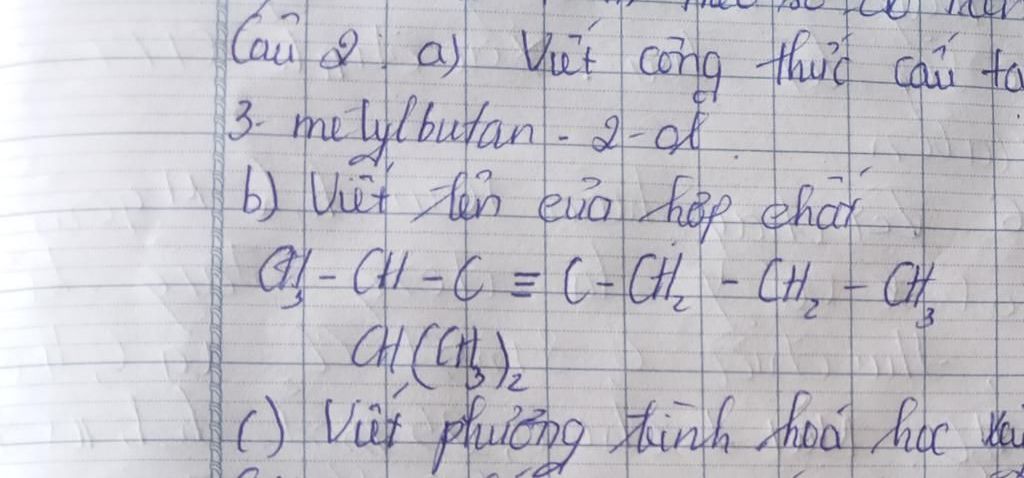 Câu 2: a) Viết công thức cấu tạ
3- metylbutan - 2 - ol
b) Viết tên của hợp chất
CH₃ - CH - C ≡ C - CH₂ - CH₂ - CH₃
CH(CH₃)₂
c) Viết phương trình hoá học